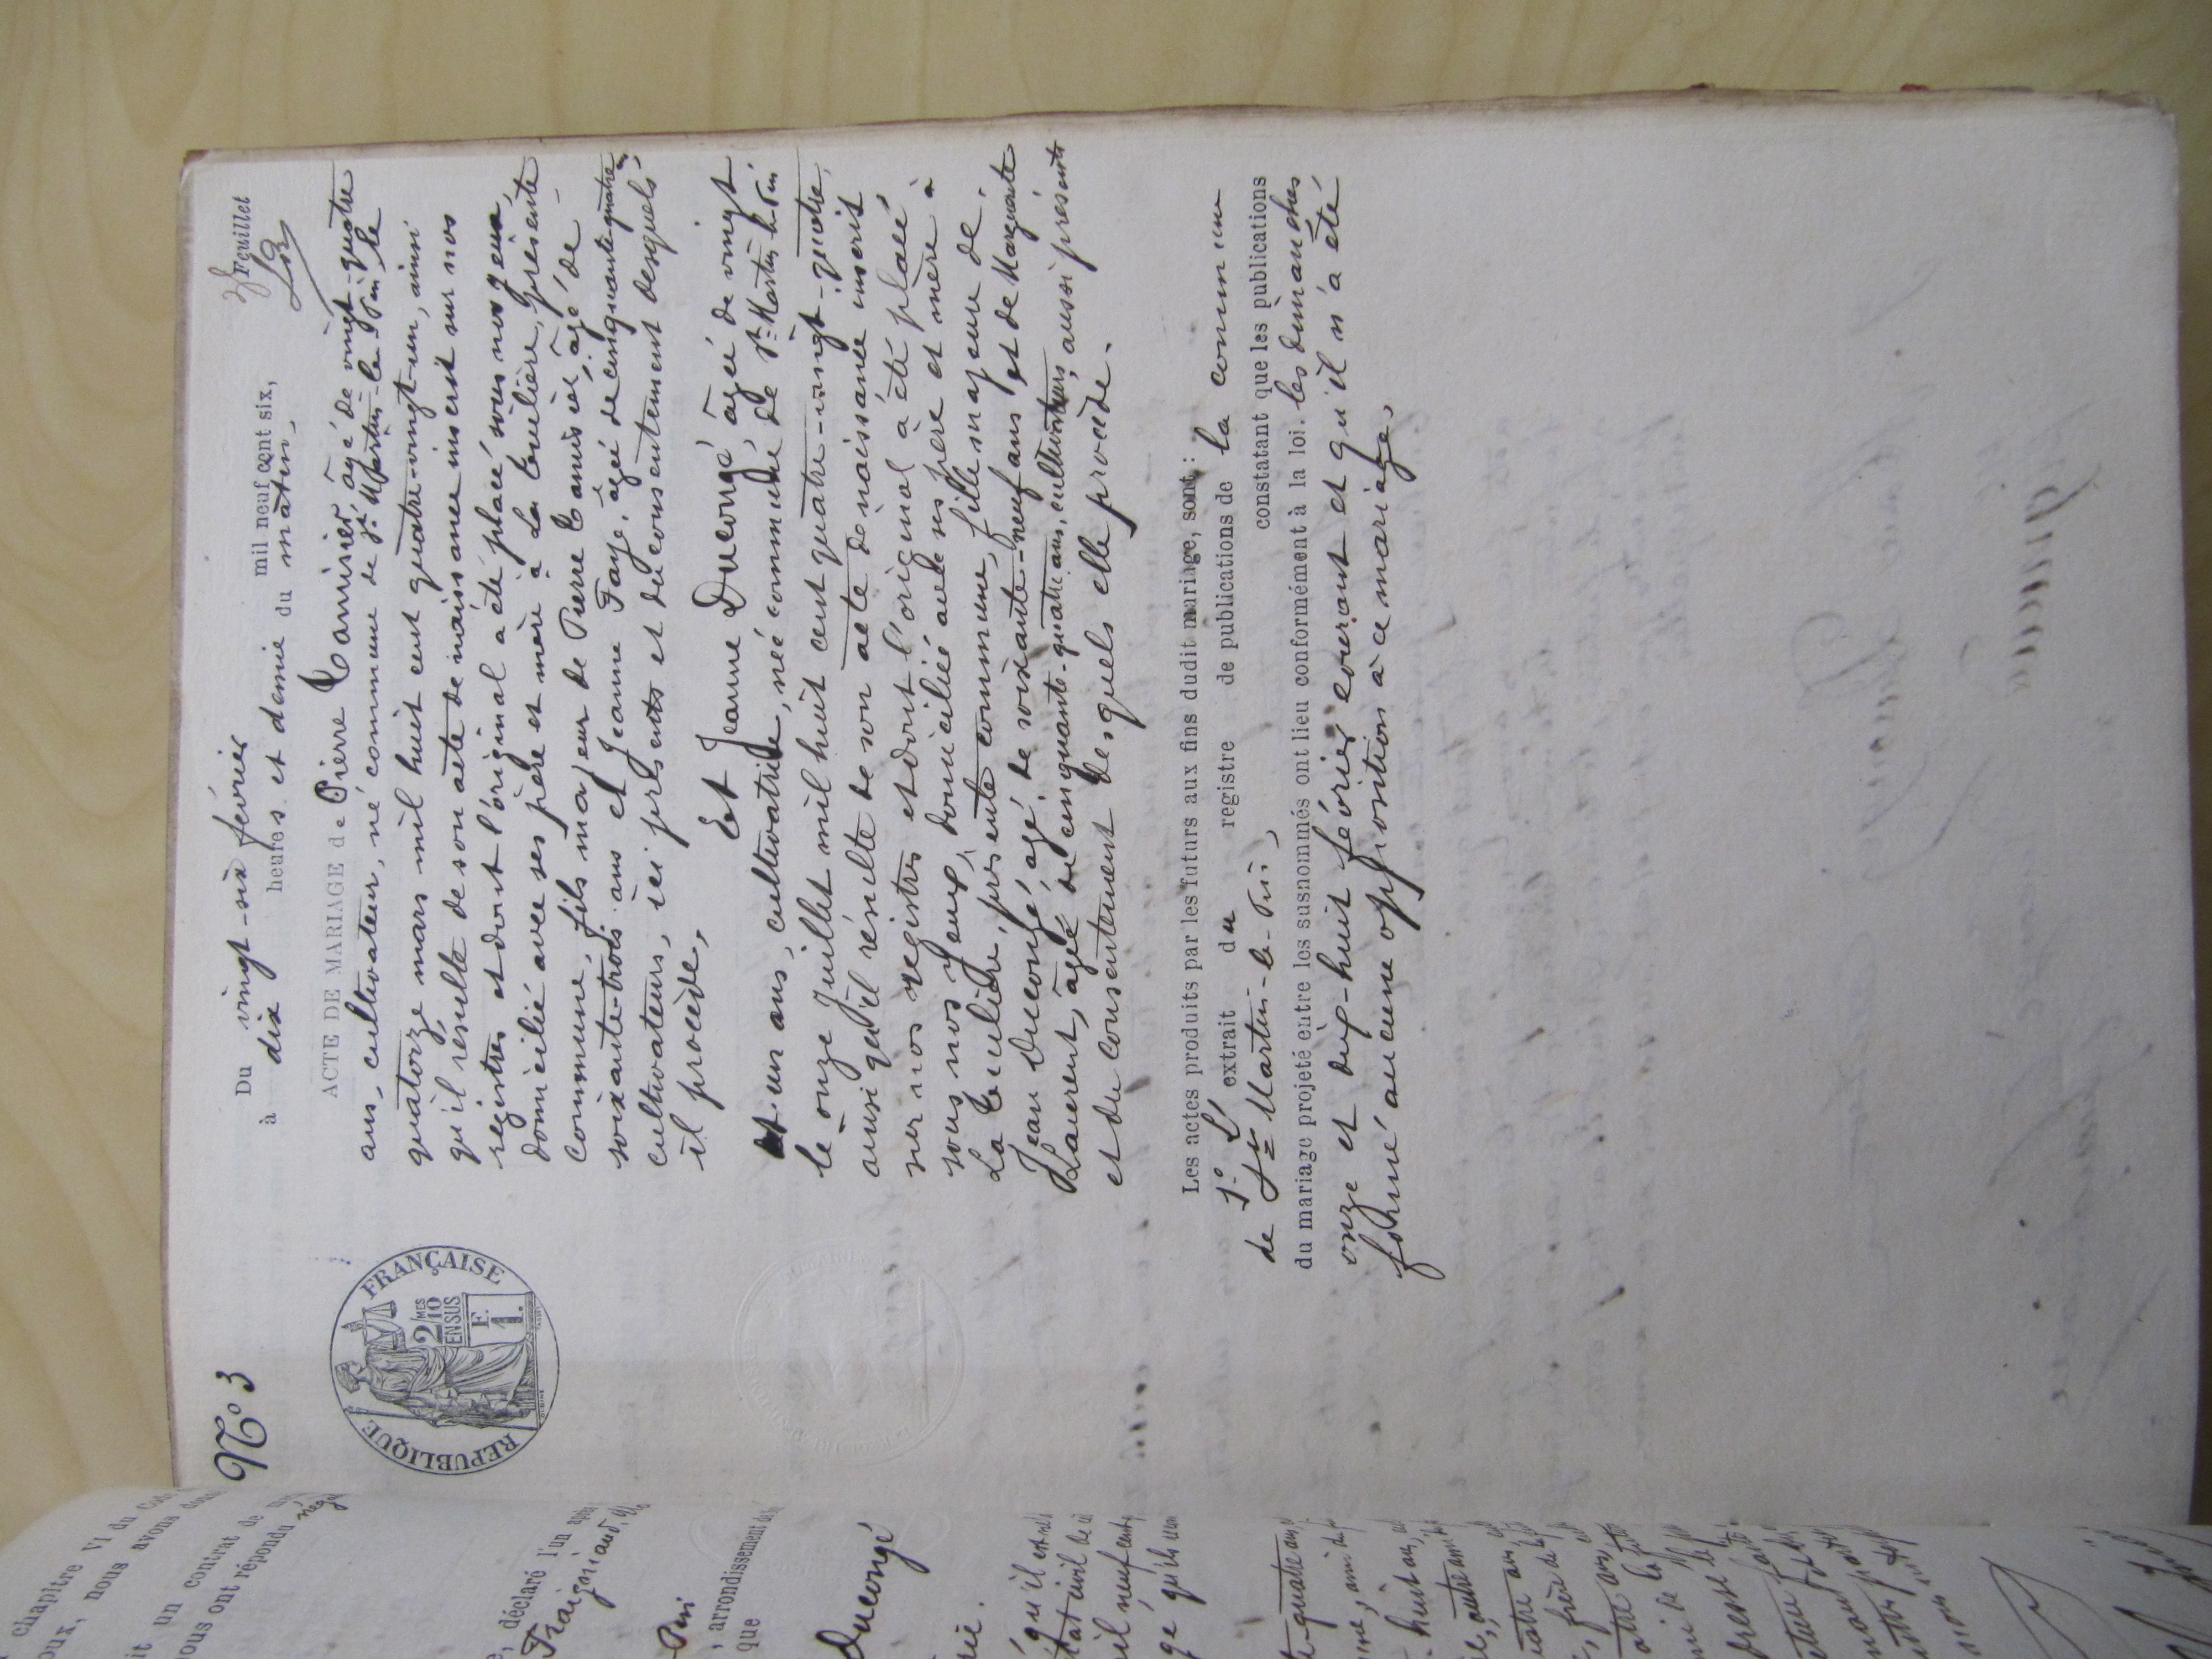 chapitre VI du Code
nous avons
un contrat de
nous ont répondu
déclaré l'un après
Fraigniaud,
, arrondissement de
que
Ducongé
qu'il est né
état civil de
mil neuf cent
qu'ils
quatre ans
, ami du
huit ans,
, autre ami
ans
, frère de la
ans,
de la
dressé le
N° 3
Feuillet
Du vingt-six février mil neuf cent six,
à dix heures et demie du matin,
REPUBLIQUE FRANÇAISE
2/10 MES
EN SUS
F.
1.
ACTE DE MARIAGE de Pierre Tamisier, âgé de vingt-quatre
ans, cultivateur, né commune de St Martin-le-Pin le
quatorze mars mil huit cent quatre-vingt-un, ainsi
qu'il résulte de son acte de naissance inscrit sur nos
registres et dont l'original a été placé sous nos yeux,
domicilié avec ses père et mère à La Tuilière, présente
commune, fils majeur de Pierre Tamisier, âgé de
soixante-trois ans et Jeanne Faye, âgée de cinquante-quatre ans
cultivateurs, ici présents et du consentement desquels
il procède,
Et Jeanne Ducongé, âgée de vingt
et un ans, cultivatrice, née commune de St Martin-le-Pin
le onze juillet mil huit cent quatre-vingt-quatre,
ainsi qu'il résulte de son acte de naissance inscrit
sur nos registres et dont l'original a été placé
sous nos yeux, domiciliée avec ses père et mère à
La Tuilière, présente commune, fille majeure de
Jean Ducongé, agé de soixante-neuf ans et de Marguerite
Laurent, âgée de cinquante-quatre ans, cultivateurs, aussi présents
et du consentement desquels elle procède.
Les actes produits par les futurs aux fins dudit mariage, sont :
1° L'extrait du registre de publications de la commune
de St Martin-le-Pin, constatant que les publications
du mariage projeté entre les susnommés ont lieu conformément à la loi. les dimanches
onze et dix-huit février courant et qu'il n'a été
formé aucune opposition à ce mariage,